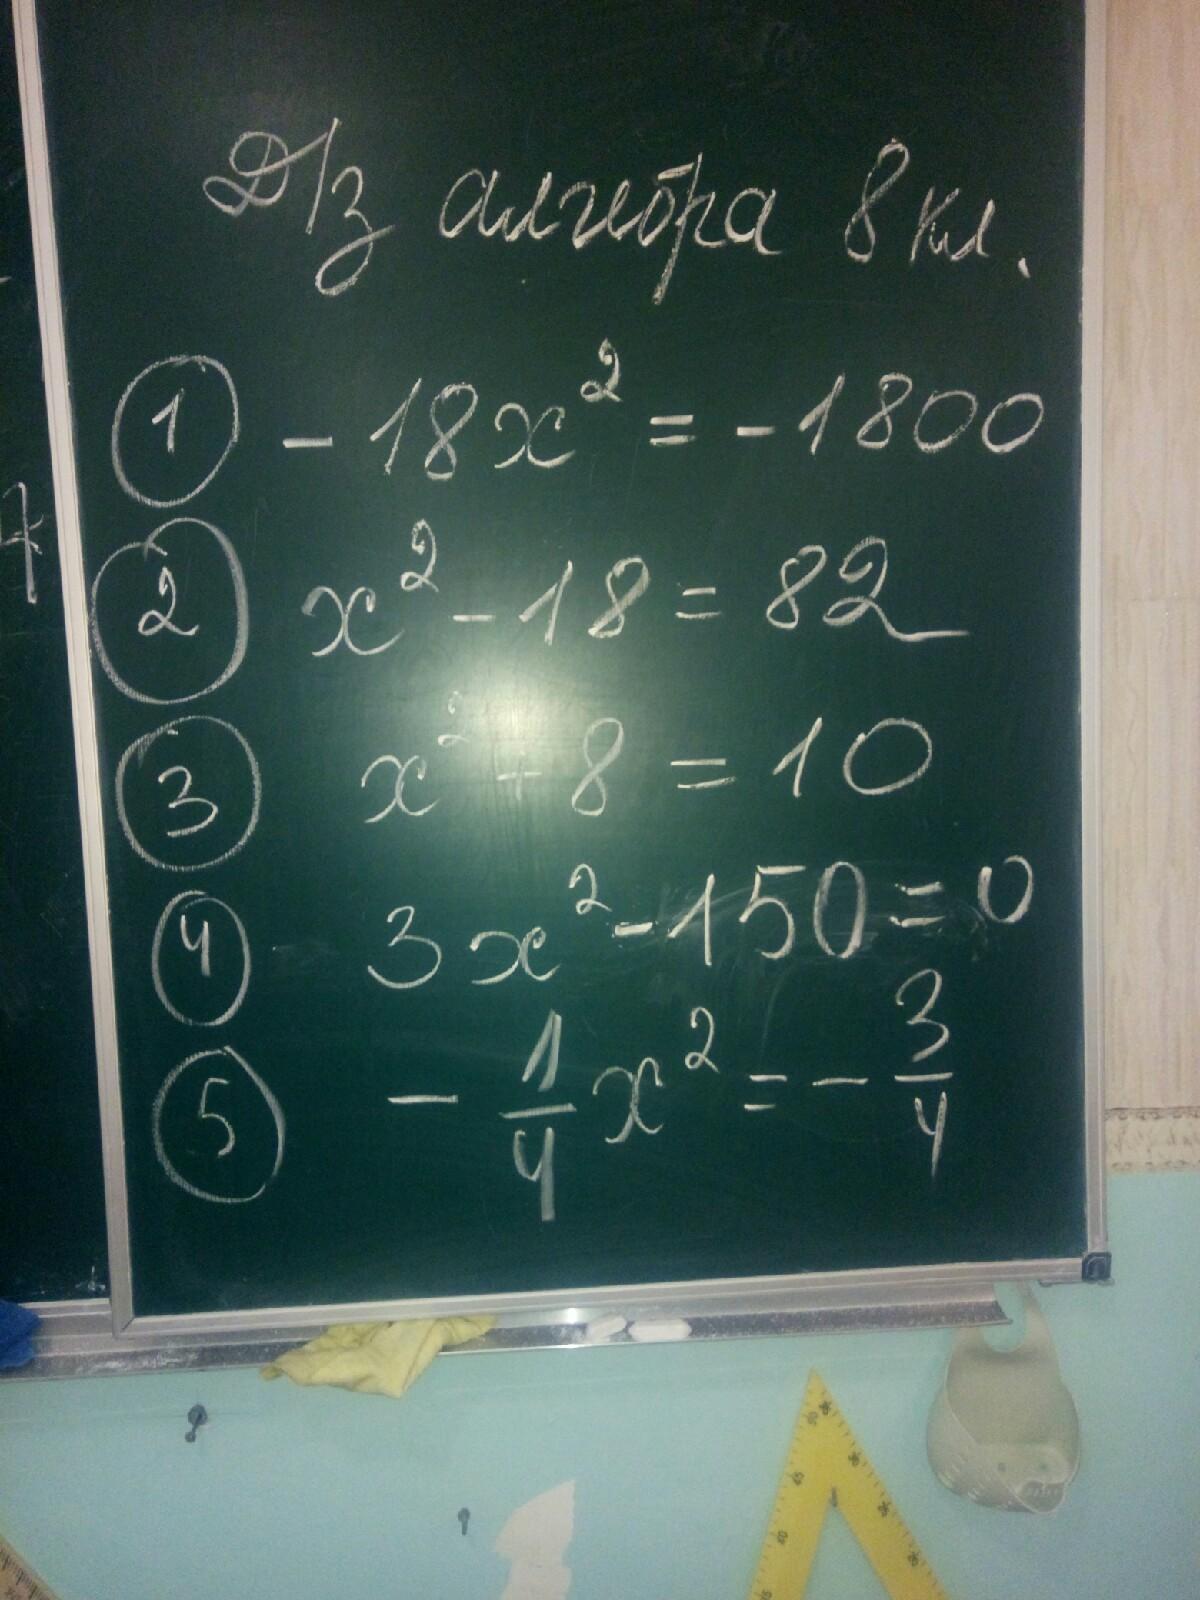 Д/з алгебра 8 кл.
① - 18x² = - 1800
② x² - 18 = 82
③ x² + 8 = 10
④ 3x² - 150 = 0
⑤ - 1/4 x² = - 3/4
7